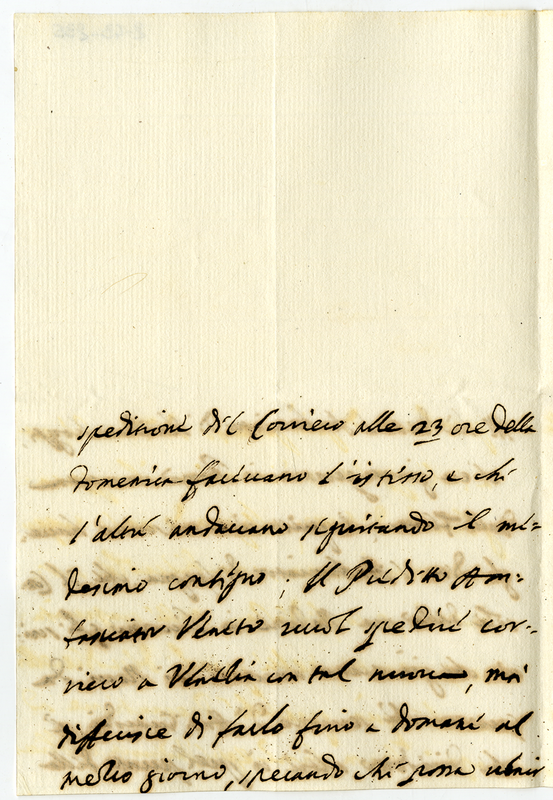 spedizione del Corriero alle 23 ore della
Domenica facevano l'istesso, e che
l'altre andavano seguitando il me-
desimo contegno; Il Predetto Am-
basciator Veneto vuol spedire cor-
riero a Venetia con tal nuova, mà
differisce di farlo fino a domani al
mezzo giorno, sperando che possa venir